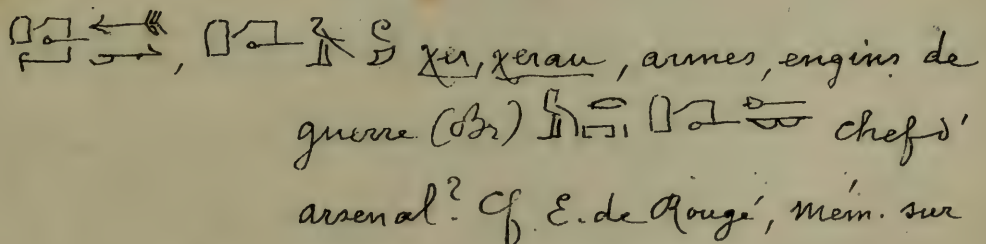 χer, χerau, armes, engins de
guerre (Br) chef d'
arsenal? Cf E. de Rougé, mém. sur